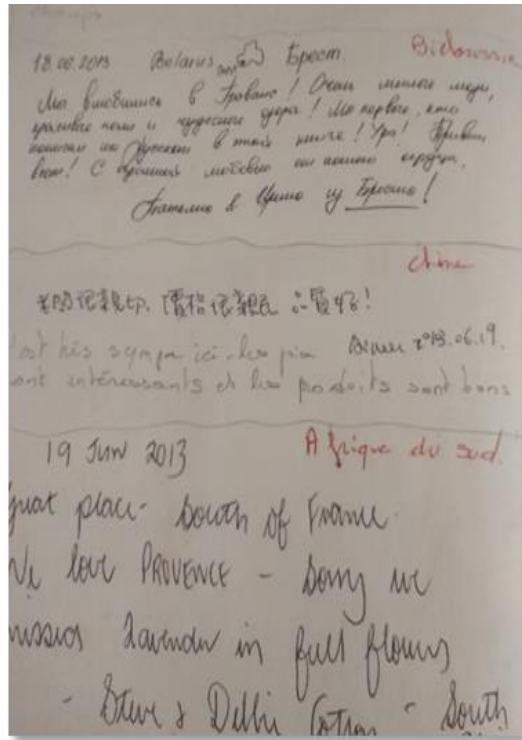 18.06.2013 Belarus Брест Biélorussie
Мы влюбились в Прованс! Очень милые люди,
красивые поля и чудесные озера! Мы первые, кто
написал на Русском в этой книге! Ура! Привет
всем! С огромной любовью от нашего сердца,
Наталия и из Бреста!
chine
老闆很親切, 價格很親民 品質好!
est très sympa ici - les prix 2013.06.19.
ont intéressants et les produits sont bons
19 JUN 2013 Afrique du sud.
Great place - South of France.
We love PROVENCE - Sorry we
missed Lavender in full flowers
- Steve & Debbie - South